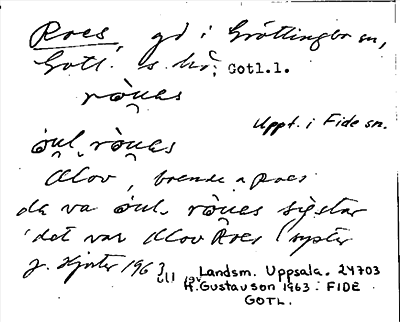 Roes, gd i Gröttingbo sn,
Gotl. s. hd; Gotl.l.
ròu̯es
Uppt. i Fide sn.
òu̯l, ròu̯es
Olov, boende a Roes
da va òul. ròu̯es
'det var Olov Roes
1963
Landsm. Uppsala. 24703
H. Gustavson 1963: FIDE
GOTL.